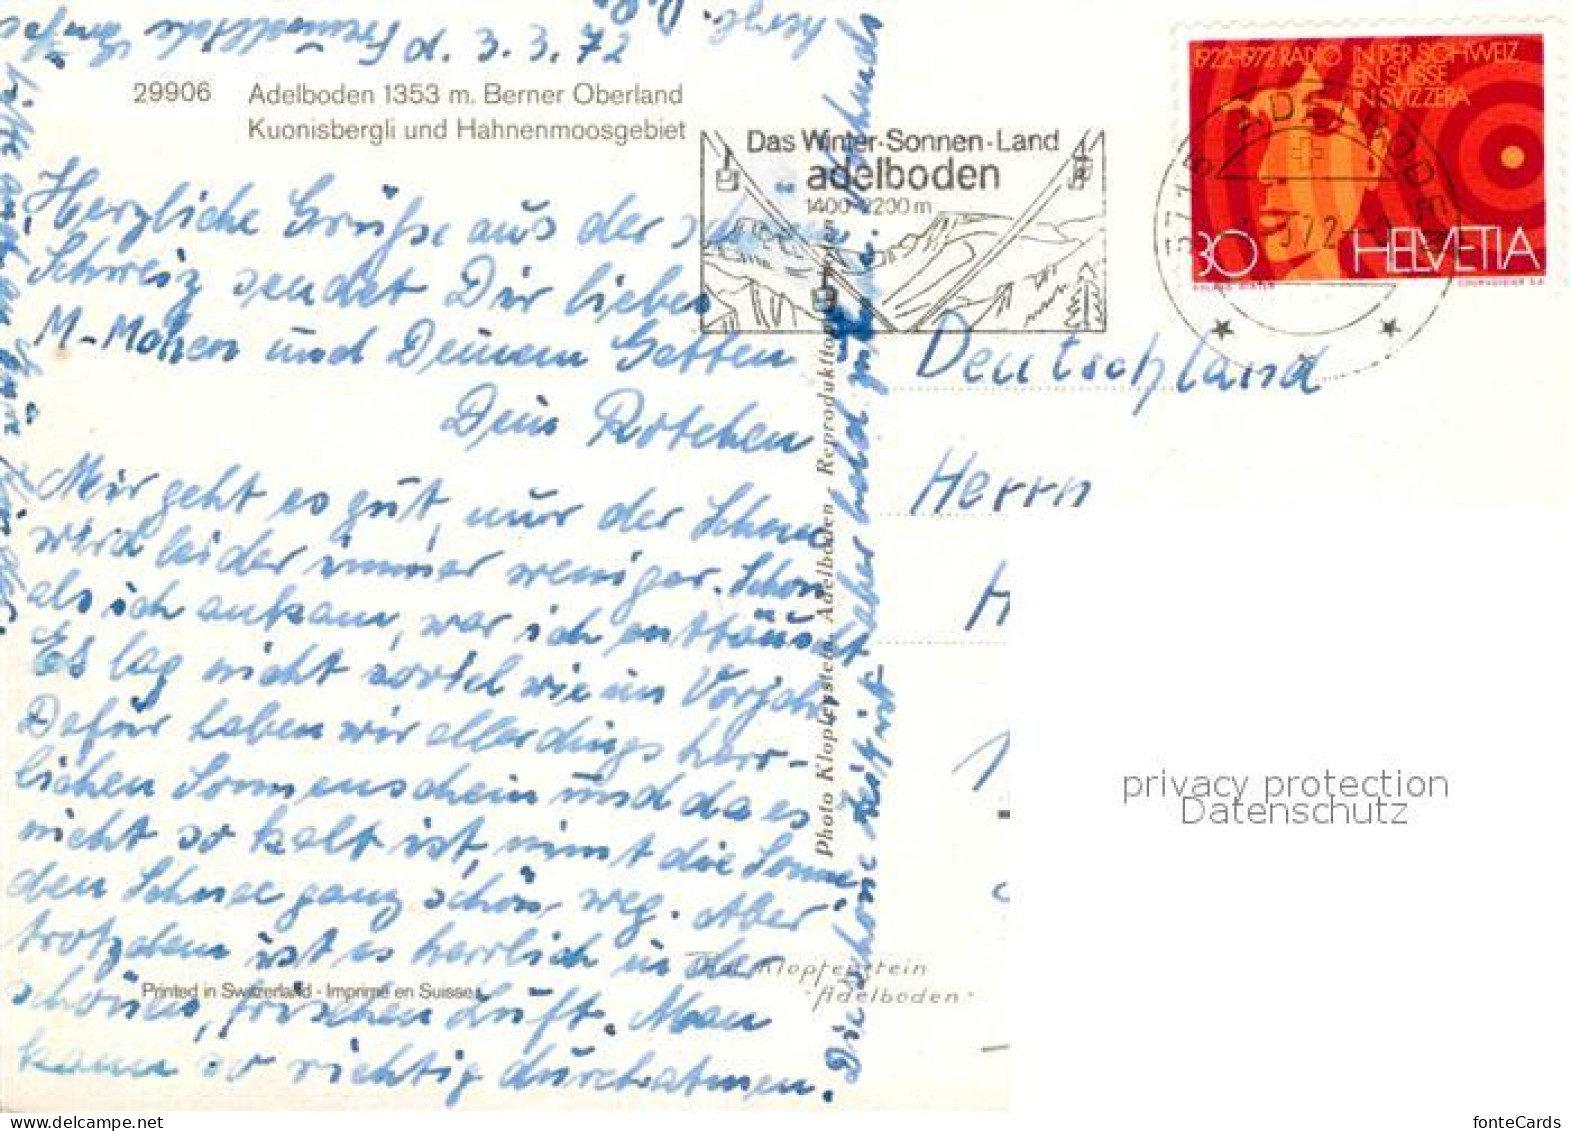 d. 3. 3. 72
29906 Adelboden 1353 m. Berner Oberland
Kuonisbergli und Hahnenmoosgebiet
Herzliche Grüße aus der
Schweiz sendet Dir lieber
und Deinem Gatten
Dein
Mir geht es gut, nur der Schnee
wird leider immer weniger. Schon
als ich ankam, war ich enttäuscht
Es lag nicht soviel wie im Vorjahr
Dafür haben wir allerdings herr-
lichen Sonnenschein und da es
nicht so kalt ist, nimt die Sonne
den Schnee ganz schön weg. Aber
trotzdem ist es herrlich in der
schönen, frischen Luft. Man
kann so richtig durchatmen.
Die schöne Zeit ist aber bald zu
Printed in Switzerland - Imprimé en Suisse
Photo Klopfenstein, Adelboden - Reproduktion
Phot Klopfenstein
- Adelboden -
Das Winter-Sonnen-Land
adelboden
1400-2200 m
1922-1972 RADIO IN DER SCHWEIZ
EN SUISSE
IN SVIZZERA
30 HELVETIA
COURVOISIER S.A.
3715 ADELBODEN
Deutschland
Herrn
H
privacy protection
Datenschutz
delcampe.net
fonteCards